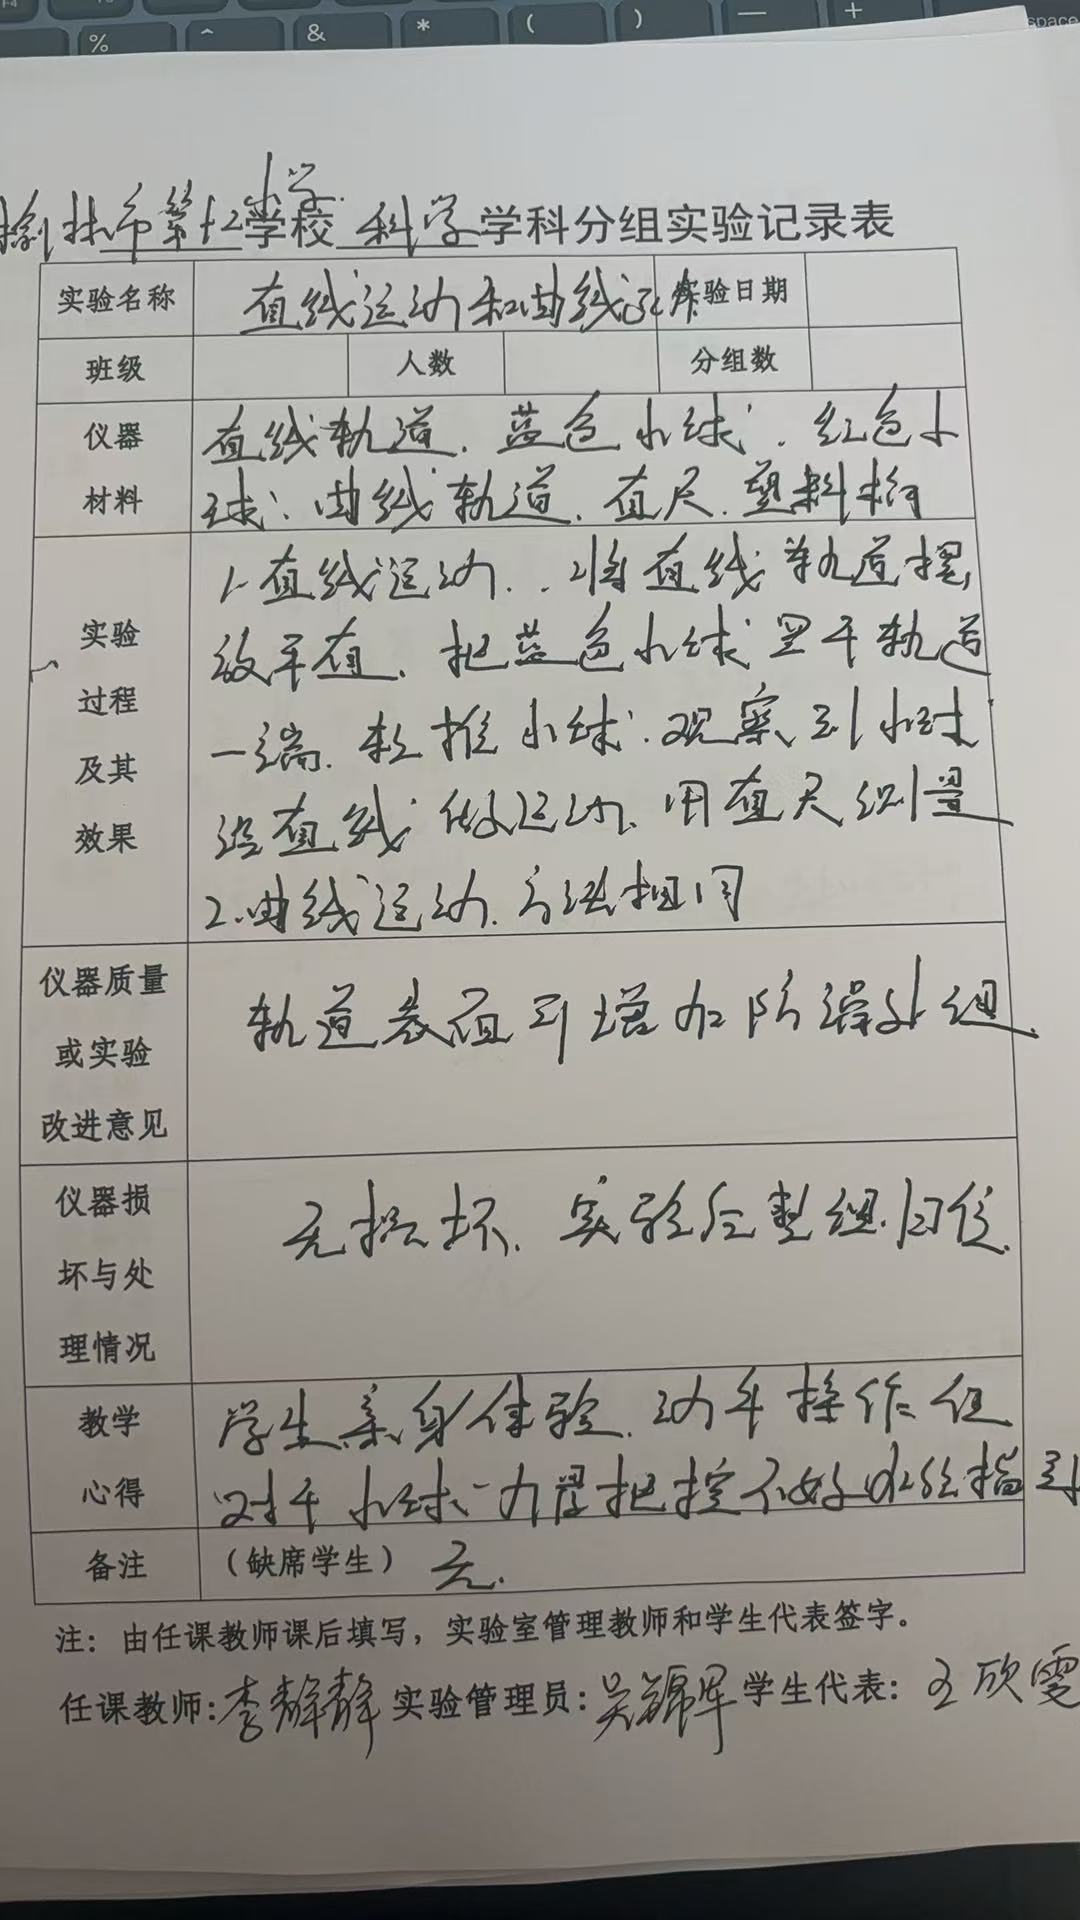 榆林市第十二小学学校 科学 学科分组实验记录表
实验名称 直线运动和曲线运动 实验日期
班级 人数 分组数
仪器材料 直线轨道、蓝色小球、红色小
球、曲线轨道、直尺、塑料桥
实验过程及其效果
1、直线运动、将直线轨道摆
放平直、把蓝色小球置于轨道
一端、轻推小球、观察到小球
沿直线做运动、用直尺测量
2、曲线运动、方法相同
仪器质量或实验改进意见
轨道表面可增加防滑
仪器损坏与处理情况
无损坏、实验后整组归位
教学心得
学生亲身体验、动手操作但
对于小球力度把控不好 指导
备注 (缺席学生) 无
注：由任课教师课后填写，实验室管理教师和学生代表签字。
任课教师：李静静 实验管理员：吴锦军 学生代表：王欣雯